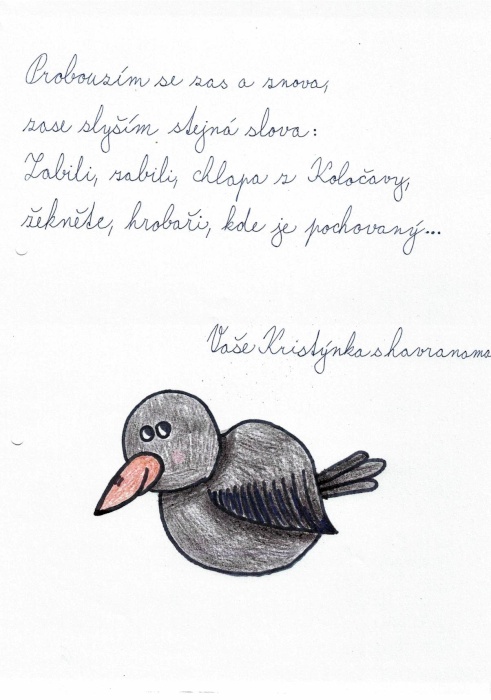 Probouzím se zas a znova,
zase slyším stejná slova:
Zabili, zabili, chlapa z Koločavy,
řekněte, hrobaři, kde je pochovaný...
Vaše Kristýnka s havranama